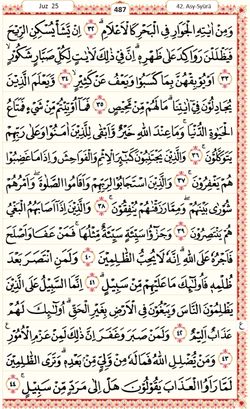 Juz 25
487
42. Asy-Syūrā
وَمِنْ اٰيٰتِهِ الْجَوَارِ فِى الْبَحْرِ كَالْاَعْلَامِ ۗ ٣٢ اِنْ يَّشَأْ يُسْكِنِ الرِّيْحَ
فَيَظْلَلْنَ رَوَاكِدَ عَلٰى ظَهْرِهٖ ۗ اِنَّ فِيْ ذٰلِكَ لَاٰيٰتٍ لِّكُلِّ صَبَّارٍ شَكُوْرٍ ۙ
٣٣ اَوْ يُوْبِقْهُنَّ بِمَا كَسَبُوْا وَيَعْفُ عَنْ كَثِيْرٍ ۙ ٣٤ وَّيَعْلَمَ الَّذِيْنَ
يُجَادِلُوْنَ فِيْٓ اٰيٰتِنَا ۗ مَا لَهُمْ مِّنْ مَّحِيْصٍ ٣٥ فَمَآ اُوْتِيْتُمْ مِّنْ شَيْءٍ فَمَتَاعُ
الْحَيٰوةِ الدُّنْيَا ۚ وَمَا عِنْدَ اللّٰهِ خَيْرٌ وَّاَبْقٰى لِلَّذِيْنَ اٰمَنُوْا وَعَلٰى رَبِّهِمْ
يَتَوَكَّلُوْنَ ۚ ٣٦ وَالَّذِيْنَ يَجْتَنِبُوْنَ كَبٰۤىِٕرَ الْاِثْمِ وَالْفَوَاحِشَ وَاِذَا مَا غَضِبُوْا
هُمْ يَغْفِرُوْنَ ۚ ٣٧ وَالَّذِيْنَ اسْتَجَابُوْا لِرَبِّهِمْ وَاَقَامُوا الصَّلٰوةَ ۖ وَاَمْرُهُمْ
شُوْرٰى بَيْنَهُمْ ۖ وَمِمَّا رَزَقْنٰهُمْ يُنْفِقُوْنَ ۚ ٣٨ وَالَّذِيْنَ اِذَآ اَصَابَهُمُ الْبَغْيُ
هُمْ يَنْتَصِرُوْنَ ٣٩ وَجَزٰۤؤُا سَيِّئَةٍ سَيِّئَةٌ مِّثْلُهَا ۚ فَمَنْ عَفَا وَاَصْلَحَ
فَاَجْرُهٗ عَلَى اللّٰهِ ۗ اِنَّهٗ لَا يُحِبُّ الظّٰلِمِيْنَ ٤٠ وَلَمَنِ انْتَصَرَ بَعْدَ
ظُلْمِهٖ فَاُولٰۤىِٕكَ مَا عَلَيْهِمْ مِّنْ سَبِيْلٍ ۗ ٤١ اِنَّمَا السَّبِيْلُ عَلَى الَّذِيْنَ
يَظْلِمُوْنَ النَّاسَ وَيَبْغُوْنَ فِى الْاَرْضِ بِغَيْرِ الْحَقِّ ۗ اُولٰۤىِٕكَ لَهُمْ
عَذَابٌ اَلِيْمٌ ٤٢ وَلَمَنْ صَبَرَ وَغَفَرَ اِنَّ ذٰلِكَ لَمِنْ عَزْمِ الْاُمُوْرِ ۚ
٤٣ وَمَنْ يُّضْلِلِ اللّٰهُ فَمَا لَهٗ مِنْ وَّلِيٍّ مِّنْۢ بَعْدِهٖ ۗ وَتَرَى الظّٰلِمِيْنَ
لَمَّا رَاَوُا الْعَذَابَ يَقُوْلُوْنَ هَلْ اِلٰى مَرَدٍّ مِّنْ سَبِيْلٍ ۚ ٤٤